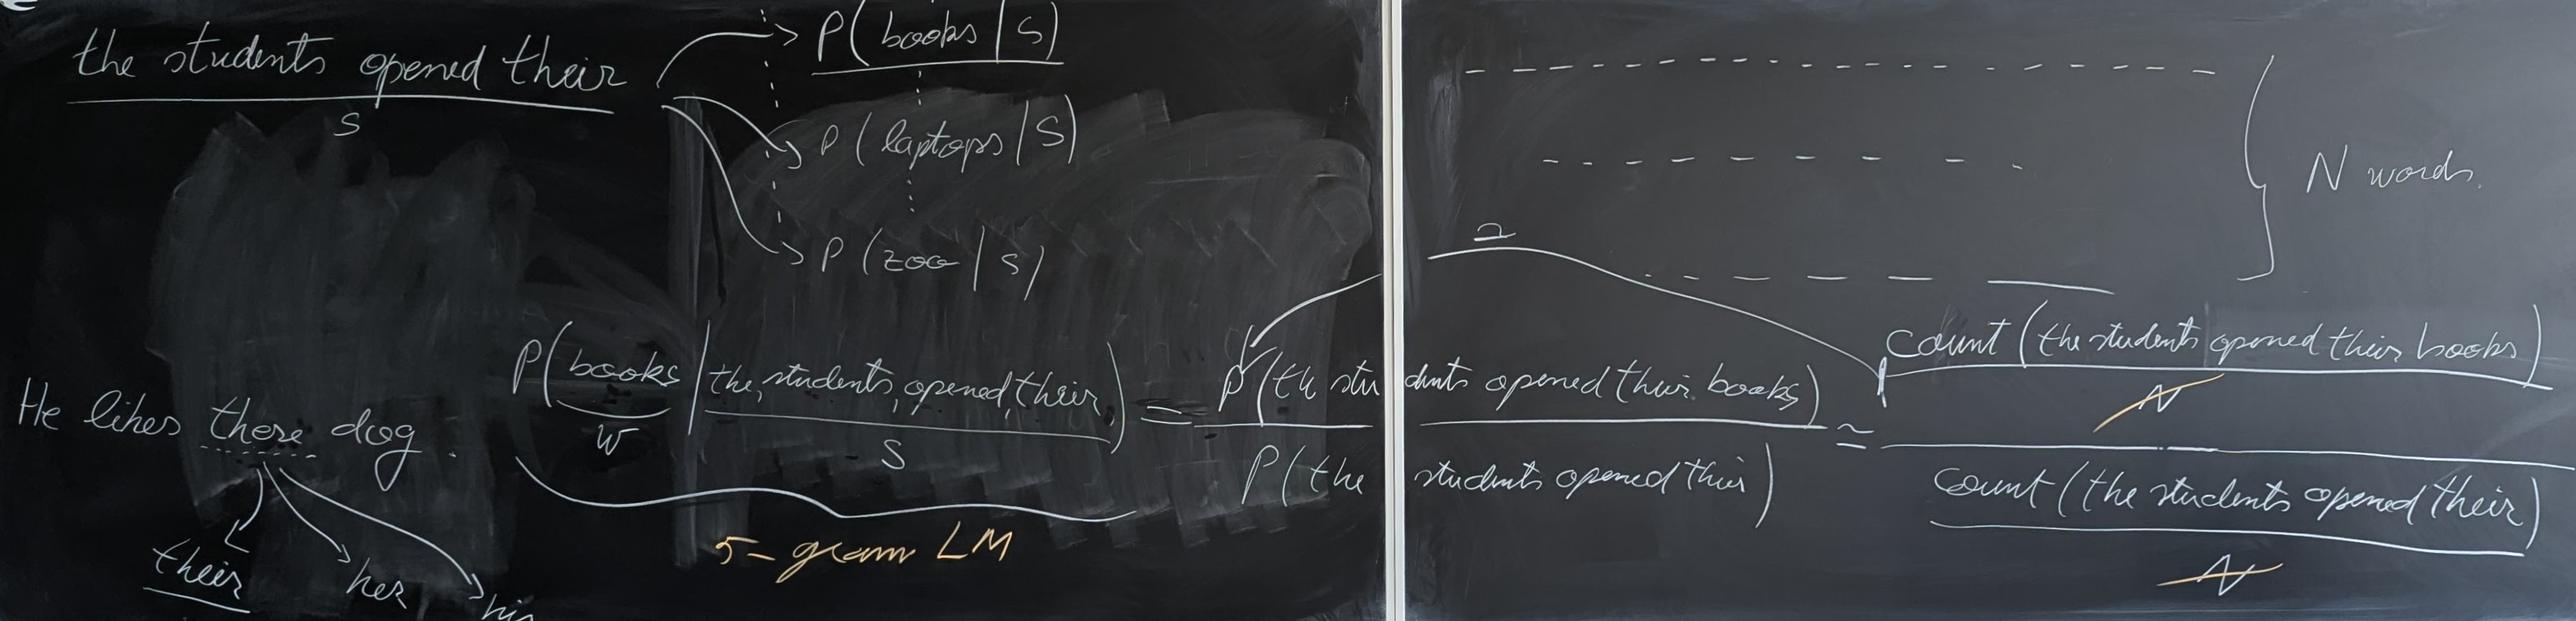 the students opened their
S
P(books | S)
P(laptops | S)
P(zoo | S)
N words.
He likes there dog.
their
her
P(books | the, students, opened, their) = P(the students opened their books) / P(the students opened their) ≃ count(the students opened their books) / N / count(the students opened their) / N
w
S
5-gram LM